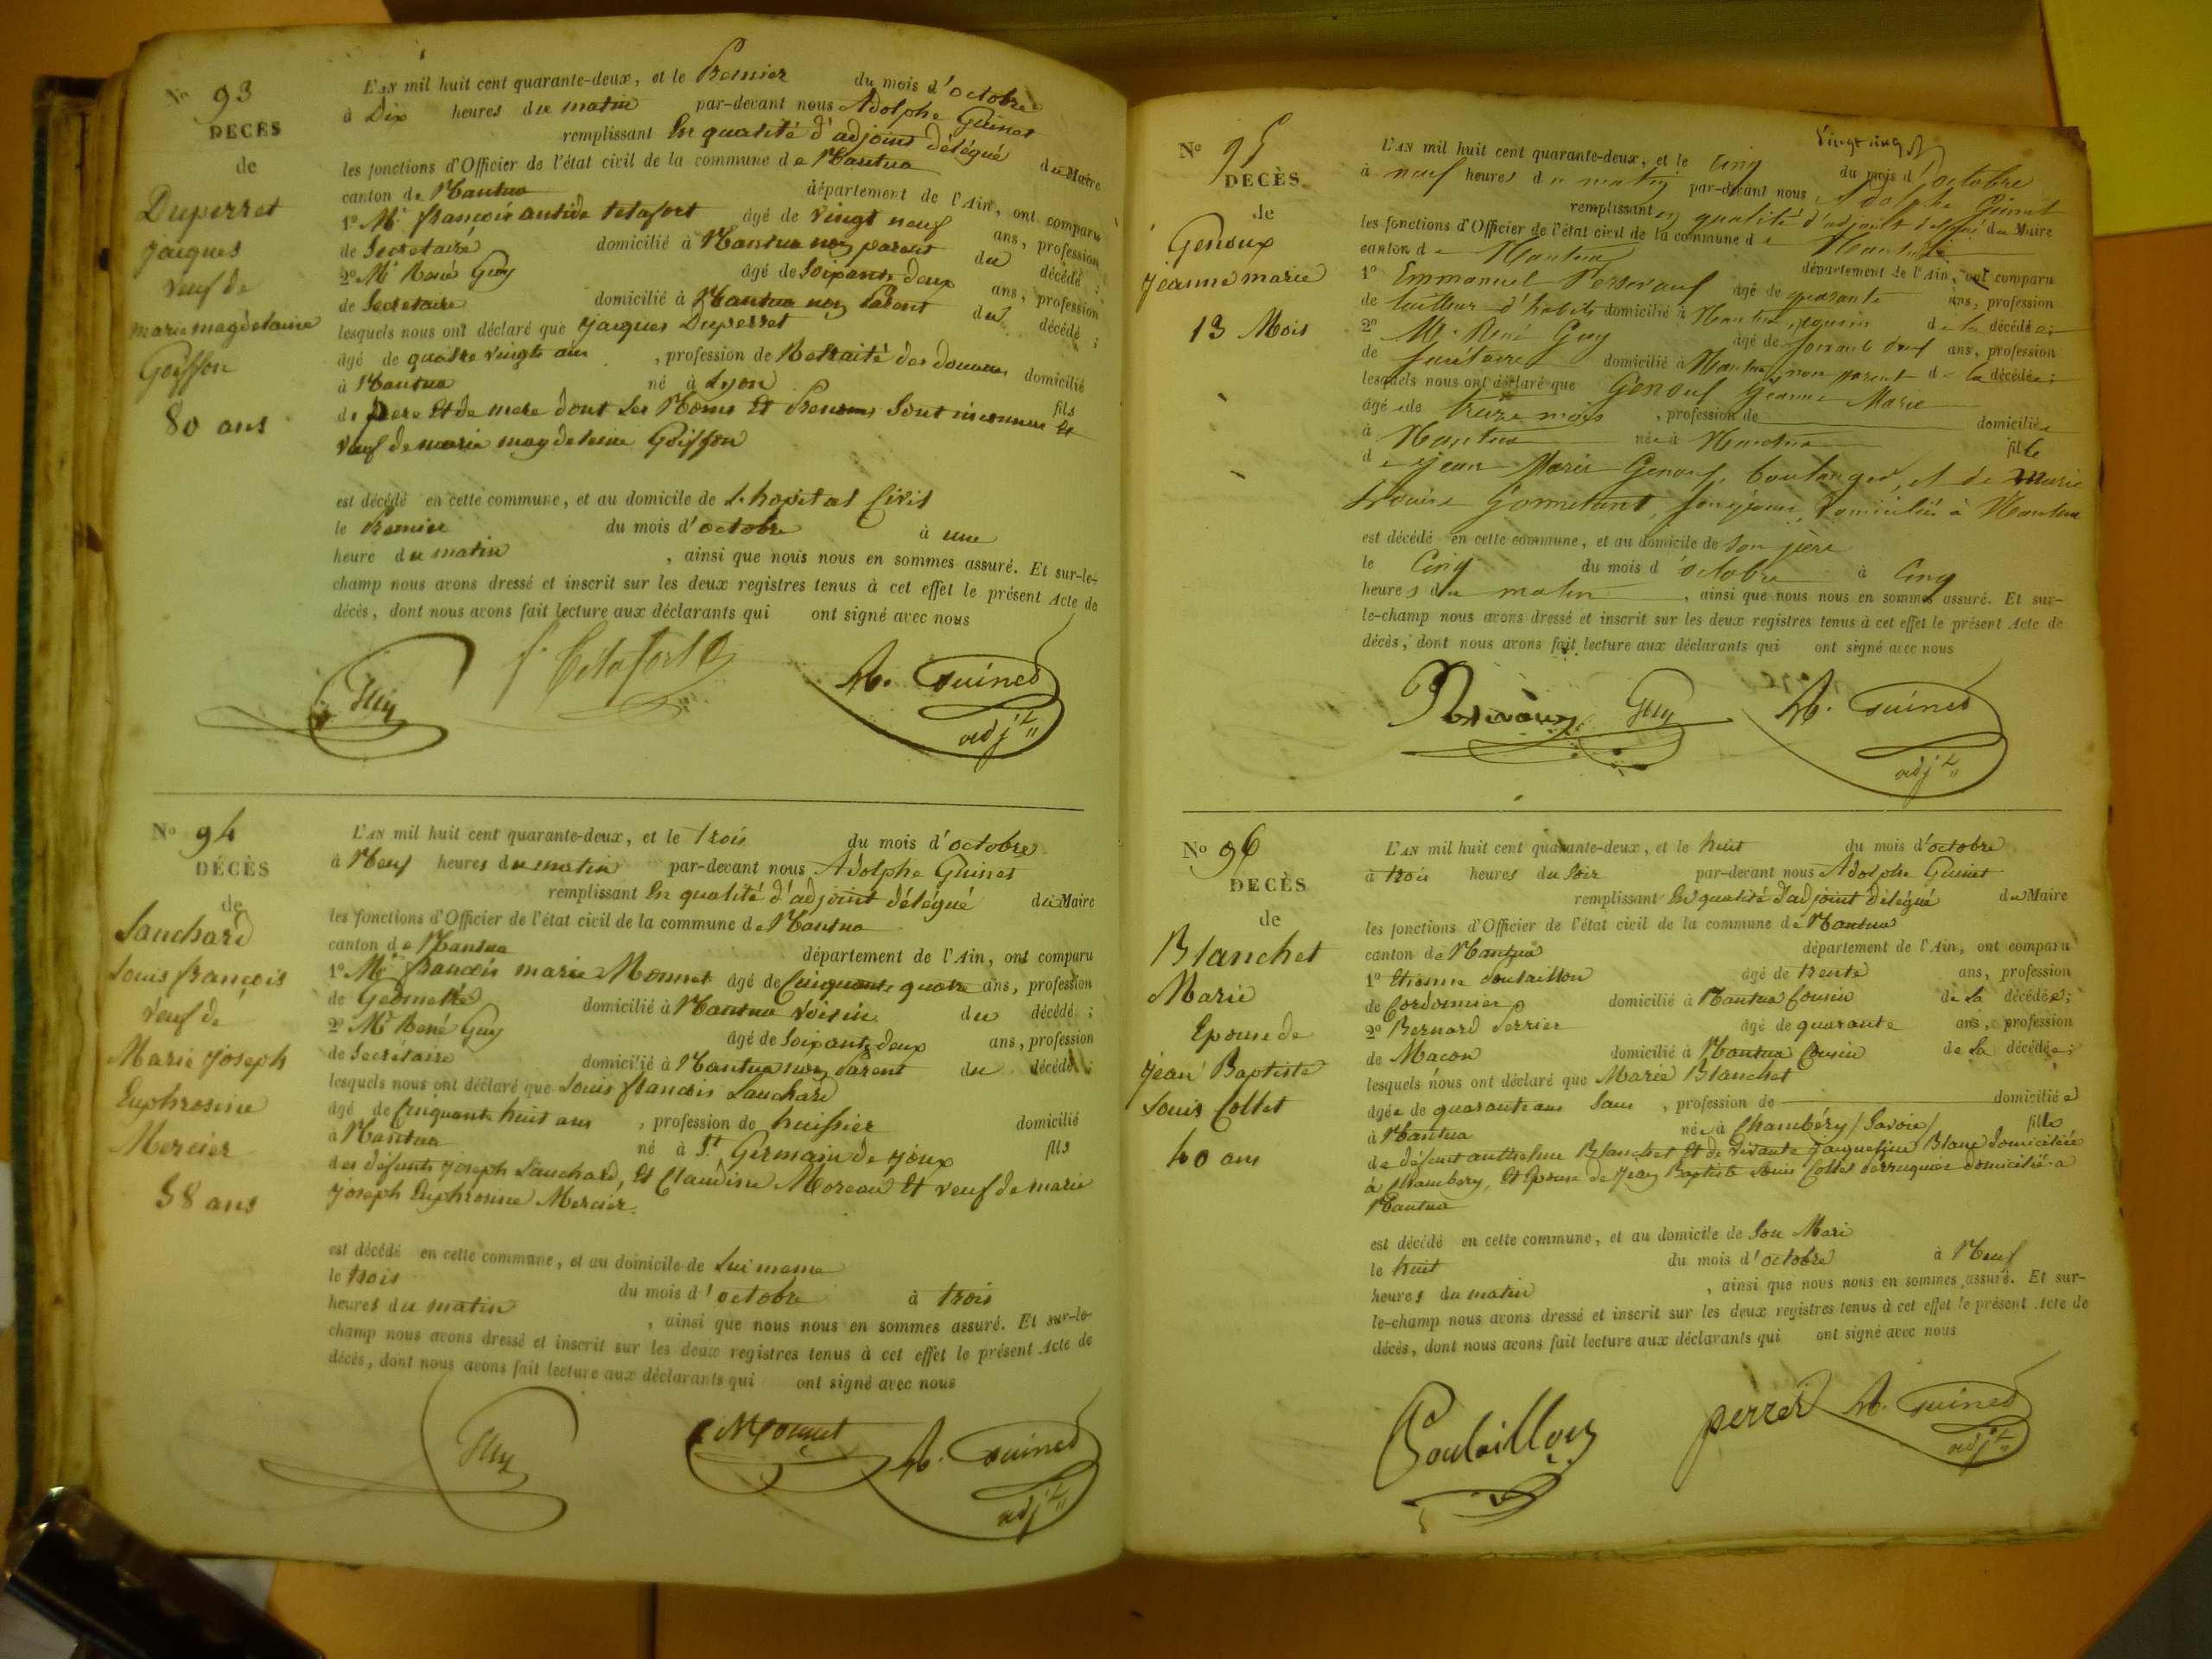 No 93
DÉCÈS
de
Duperret
jacques
veuf de
marie magdelaine
Goiffon
80 ans
L'AN mil huit cent quarante-deux, et le Premier du mois d'octobre
à Dix heures du matin par-devant nous Adolphe Guinet
remplissant En qualité d'adjoint délégué du Maire
les fonctions d'Officier de l'état civil de la commune de Nantua
canton de Nantua département de l'Ain, ont comparu
1º Mr. françois antide tetafort âgé de vingt neuf ans, profession
de Secretaire domicilié à Nantua non parent du décédé ;
2º Mr René Guy âgé de Soixante deux ans, profession
de Secretaire domicilié à Nantua non Parent du décédé ;
lesquels nous ont déclaré que jacques Duperret
âgé de quatre vingts ans , profession de Retraité des douanes domicilié
à Nantua né à Lyon fils
de pere Et de mere dont Les Noms Et Prenoms Sont inconnus Et
veuf de marie magdeleine Goiffon
est décédé en cette commune, et au domicile de L'hopital Civil
le Premier du mois d'octobre à une
heure du matin , ainsi que nous nous en sommes assuré. Et sur-le-
champ nous avons dressé et inscrit sur les deux registres tenus à cet effet le présent Acte de
décès, dont nous avons fait lecture aux déclarants qui ont signé avec nous
Guy f. Tetafort A. Guinet
adjt
No 94
DÉCÈS
de
Sauchard
Louis françois
veuf de
Marie joseph
Euphrosine
Mercier
58 ans
L'AN mil huit cent quarante-deux, et le trois du mois d'octobre
à Neuf heures du matin par-devant nous Adolphe Guinet
remplissant En qualité d'adjoint délégué du Maire
les fonctions d'Officier de l'état civil de la commune de Nantua
canton de Nantua département de l'Ain, ont comparu
1º Mr françois marie Monnet âgé de Cinquante quatre ans, profession
de Géometre domicilié à Nantua Voisin du décédé ;
2º Mr René Guy âgé de Soixante deux ans, profession
de Secrétaire domicilié à Nantua non parent du décédé ;
lesquels nous ont déclaré que Louis françois Sauchard
âgé de Cinquante huit ans , profession de huissier domicilié
à Nantua né à St Germain de joux fils
des défunts joseph Sauchard, Et Claudine Moreau Et veuf de marie
joseph Euphrosine Mercier.
est décédé en cette commune, et au domicile de Lui meme
le trois du mois d'octobre à trois
heures du matin , ainsi que nous nous en sommes assuré. Et sur-le-
champ nous avons dressé et inscrit sur les deux registres tenus à cet effet le présent Acte de
décès, dont nous avons fait lecture aux déclarants qui ont signé avec nous
Guy Monnet A. Guinet
adjt
No 95
DÉCÈS
de
Genoux
jeanne marie
13 Mois
L'AN mil huit cent quarante-deux, et le cinq du mois d'octobre
à neuf heures du matin par-devant nous Adolphe Guinet
remplissant en qualité d'adjoint délégué du Maire
les fonctions d'Officier de l'état civil de la commune de Nantua
canton de Nantua département de l'Ain, ont comparu
1º Emmanuel âgé de quarante ans, profession
de tailleur d'habits domicilié à Nantua, cousin de la décédée ;
2º Mr. René Guy âgé de soixante deux ans, profession
de secrétaire domicilié à Nantua non parent de la décédée ;
lesquels nous ont déclaré que Genoux Jeanne Marie
âgée de treize mois , profession de domiciliée
à Nantua née à Nantua fille
de jean Marie Genoux, boulanger, et de Marie
Louise Gometant, domiciliés à Nantua
est décédé en cette commune, et au domicile de Son père
le Cinq du mois d'octobre à Cinq
heures du matin , ainsi que nous nous en sommes assuré. Et sur-
le-champ nous avons dressé et inscrit sur les deux registres tenus à cet effet le présent Acte de
décès, dont nous avons fait lecture aux déclarants qui ont signé avec nous
Guy A. Guinet
adjt
No 96
DÉCÈS
de
Blanchet
Marie
Epouse de
jean Baptiste
Louis Collet
40 ans
L'AN mil huit cent quarante-deux, et le huit du mois d'octobre
à trois heures du Soir par-devant nous Adolphe Guinet
remplissant En qualité d'adjoint délégué du Maire
les fonctions d'Officier de l'état civil de la commune de Nantua
canton de Nantua département de l'Ain, ont comparu
1º Etienne Goutaillon âgé de trente ans, profession
de Cordonnier domicilié à Nantua Cousin de La décédée ;
2º Bernard Perrier âgé de quarante ans, profession
de Macon domicilié à Nantua Cousin de La décédée ;
lesquels nous ont déclaré que Marie Blanchet
âgée de quarante ans Sans , profession de domiciliée
à Nantua née à Chambéry /Savoie/ fille
de défunt anthelme Blanchet Et de vivante jacqueline Blanc domiciliée
à Chambery, Et Epouse de jean Baptiste Louis Collet perruquier domicilié à
Nantua
est décédé en cette commune, et au domicile de Son Mari
le huit du mois d'octobre à Neuf
heures du matin , ainsi que nous nous en sommes assuré. Et sur-
le-champ nous avons dressé et inscrit sur les deux registres tenus à cet effet le présent Acte de
décès, dont nous avons fait lecture aux déclarants qui ont signé avec nous
Goutaillon perrier A. Guinet
adjt